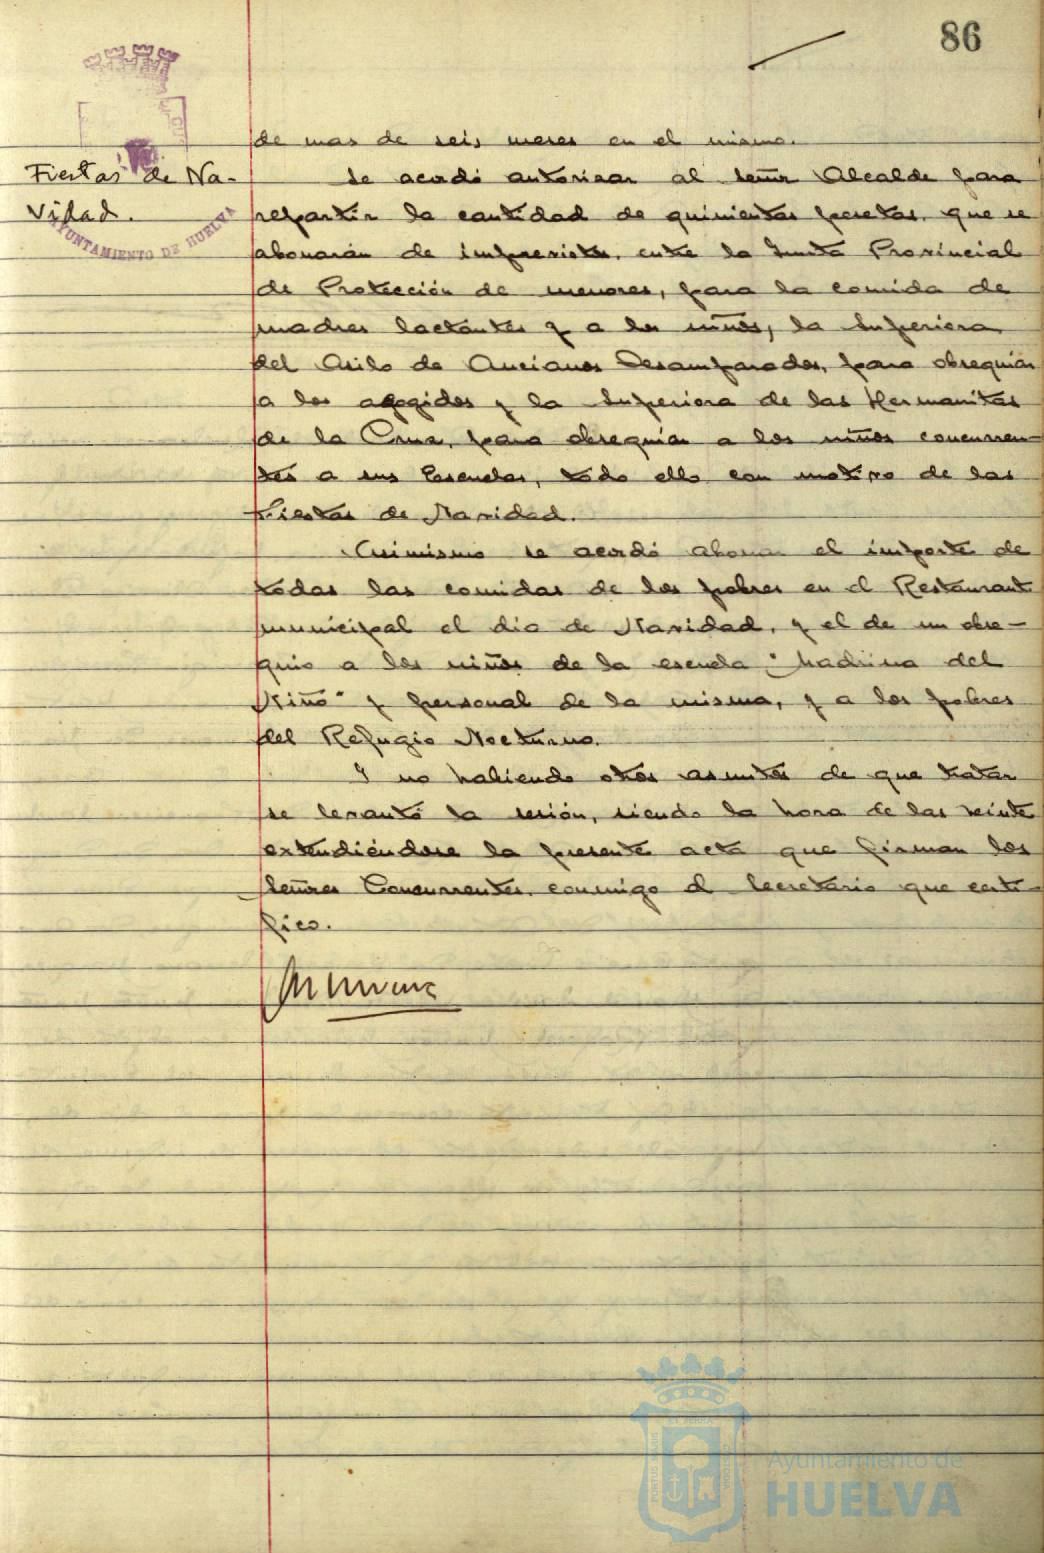 86
de mas de seis meses en el mismo.
Fiestas de Na-
vidad.
AYUNTAMIENTO DE HUELVA
Se acordó autorizar al señor Alcalde para
repartir la cantidad de quinientas pesetas, que se
abonarán de imprevistos, entre la Junta Provincial
de Protección de menores, para la comida de
madres lactantes y a los niños, la Superiora
del Asilo de Ancianos Desamparados, para obsequiar
a los acogidos y la Superiora de las Hermanitas
de la Cruz, para obsequiar a los niños concurren-
tes a sus Escuelas, todo ello con motivo de las
Fiestas de Navidad.
Asimismo se acordó abonar el importe de
todas las comidas de los pobres en el Restaurant
municipal el dia de Navidad, y el de un obse-
quio a los niños de la escuela "Madrina del
Niño" y personal de la misma, y a los pobres
del Refugio Nocturno.
Y no habiendo otros asuntos de que tratar
se levantó la sesión, siendo la hora de las veinte
extendiéndose la presente acta que firman los
señores Concurrentes conmigo el Secretario que certi-
fico.
Ayuntamiento de
HUELVA